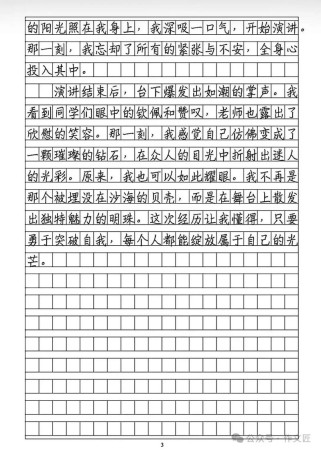 的阳光照在我身上，我深吸一口气，开始演讲。
那一刻，我忘却了所有的紧张与不安，全身心
投入其中。
演讲结束后，台下爆发出如潮的掌声。我
看到同学们眼中的钦佩和赞叹，老师也露出了
欣慰的笑容。那一刻，我感觉自己仿佛变成了
一颗璀璨的钻石，在众人的目光中折射出迷人
的光彩。原来，我也可以如此耀眼。我不再是
那个被埋没在沙海的贝壳，而是在舞台上散发
出独特魅力的明珠。这次经历让我懂得，只要
勇于突破自我，每个人都能绽放属于自己的光
芒。
3
公众号·作文匠